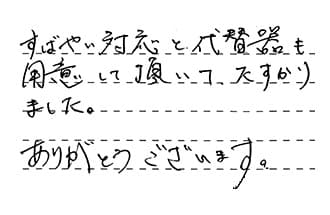 すばやい対応と代替器も
用意して頂いて、たすかり
ました。
ありがとうございます。